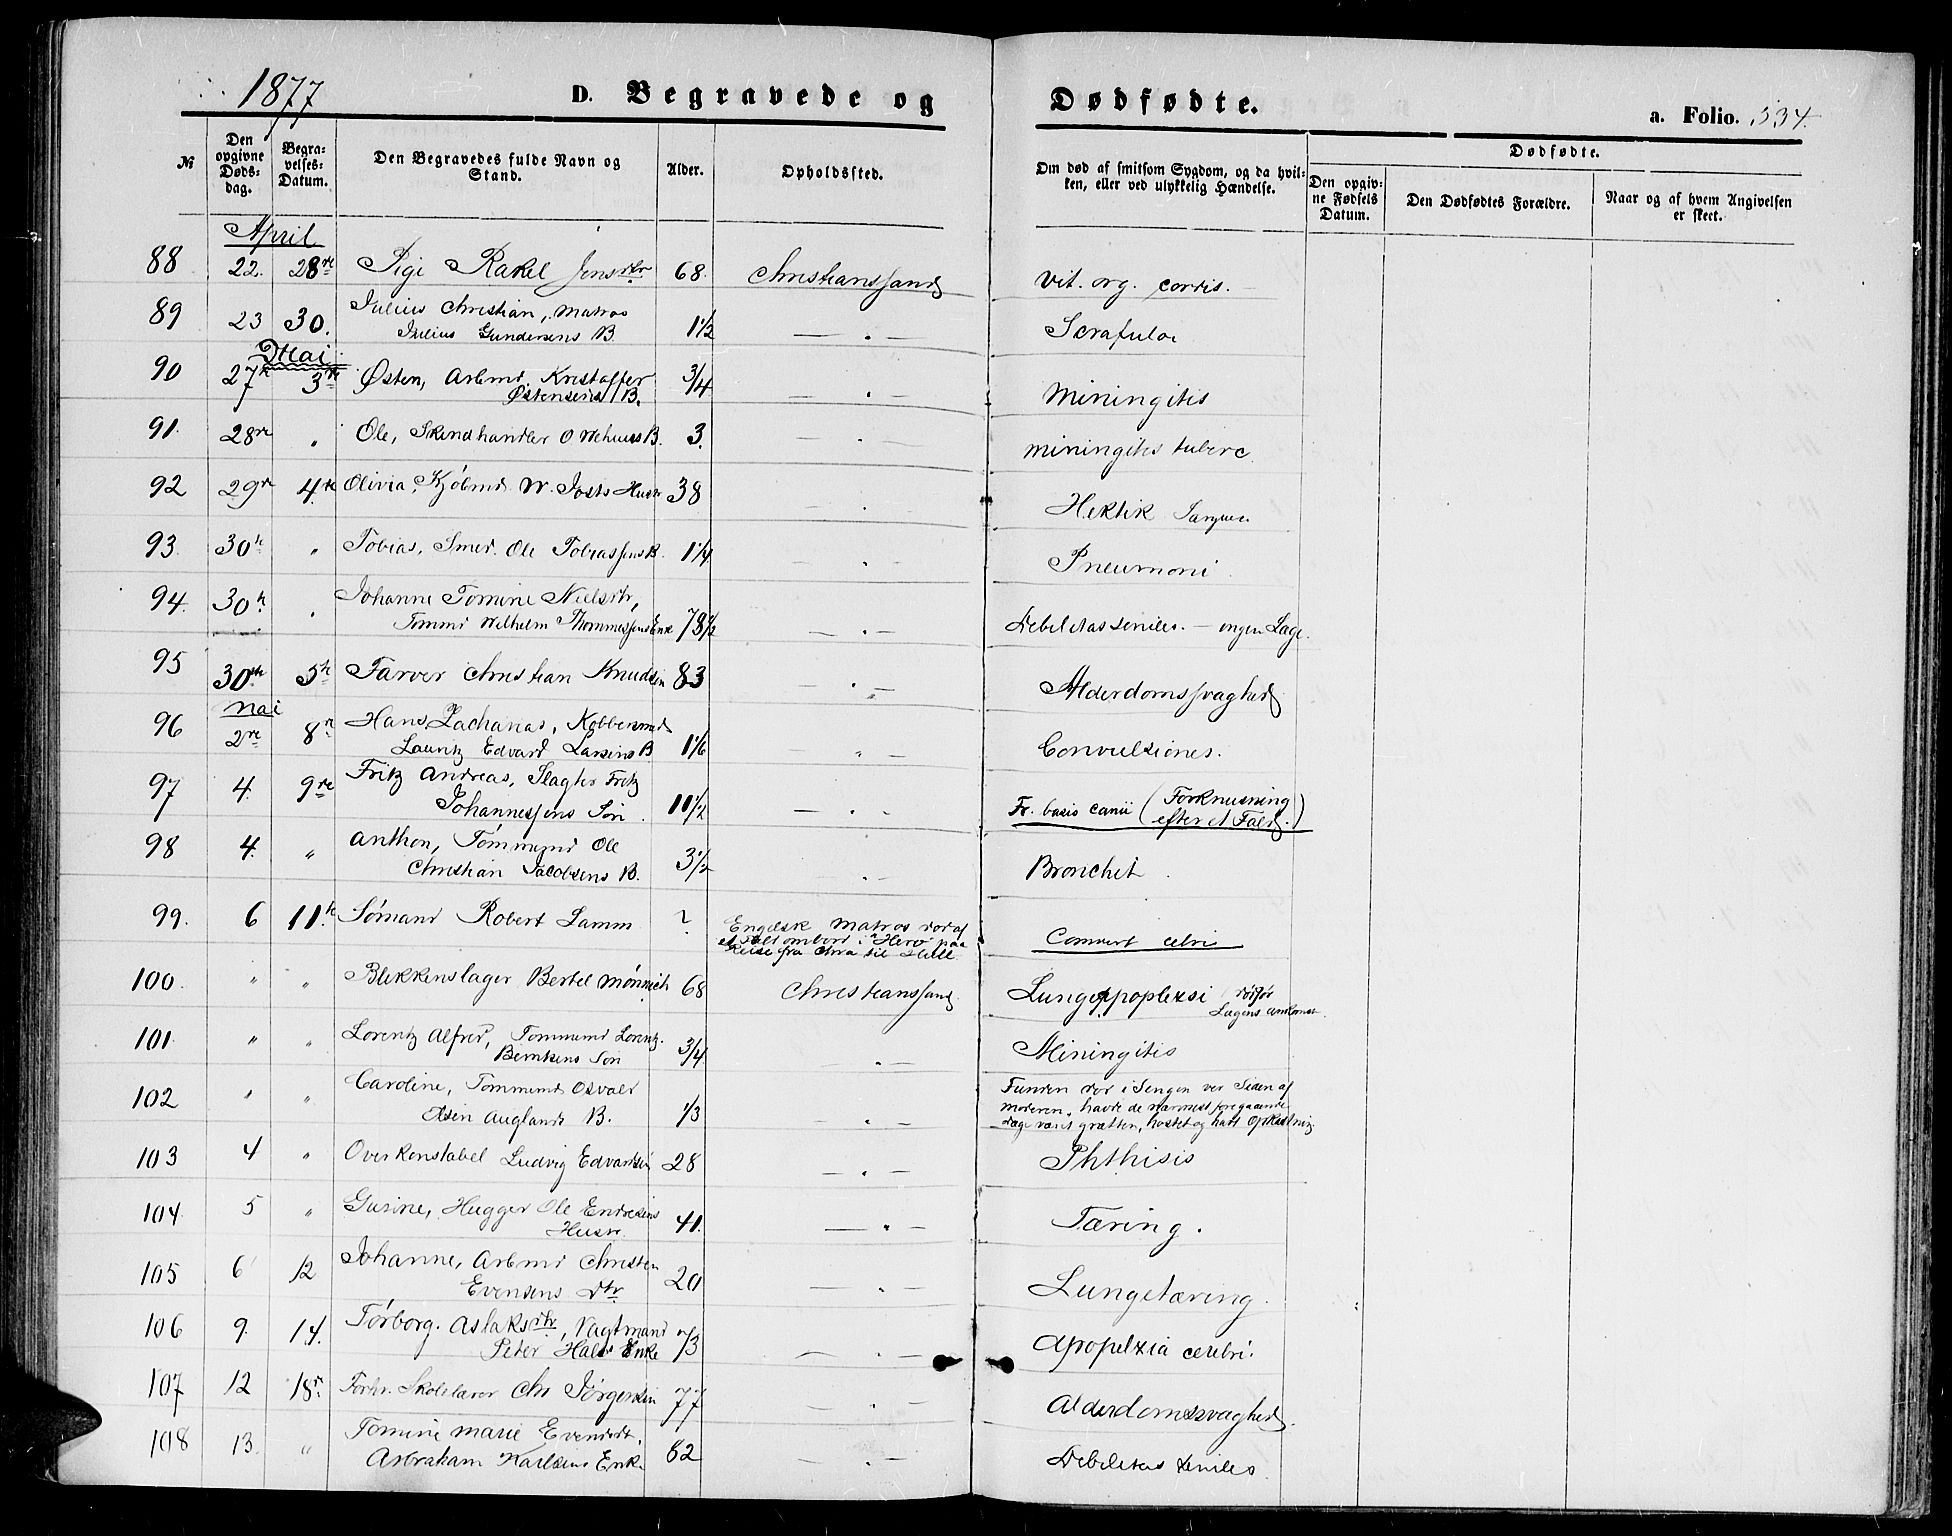 1877 D. Begravede og Dødfødte. a. Folio. 334.
№ Den opgivne Døds-dag. Begra-velses-Datum. Den Begravedes fulde Navn og Stand. Alder. Opholdssted. Om død af smitsom Sygdom, og da hvil-ken, eller ved ulykkelig Hændelse. Dødfødte. Den opgiv-ne Fødsels Datum. Den Dødfødtes Forældre. Naar og af hvem Angivelsen er skeet.
April
88 22. 28de Pige Rakel Jensdtr 68. Christianssand vit. org. cordis.
89 23 30. Julius Christian, Matros
Julius Gundersens B. 1½ — " — Scrafulae
Mai
90 27de 3de Østen, Arbmd. Kristoffer
Østensens B. ¾ — " — Miningitis
91. 28de " Ole, Skindhandler O Wehuus B. 3. — " — miningites tuberc
92 29de 4de Olivia, Kjöbmd W. Josts Hustr 38 — " — Hektik
93. 30te " Tobias, Smed. Ole Tobiassens B. 1¼ — " — Pneumoni
94. 30te " Johanne Tomine Nielsdtr,
Tømmd Wilhelm Thommessens Enke 78½ — " — Debilitas seniles. — ingen Læge.
95 30te 5te Farver Christian Knudsen 83 — " — Alderdomssvaghed
Mai
96 2de 8de Hans Zacharias, Kobbersmed
Lauritz Edvard Larsens B 1⅙ — " — Convulsiones.
97 4. 9de Fritz Andreas, Slagter Fritz
Johannessens Søn 11½ — " — Fr. basis canii (Forknusning
efter et Fald.)
98 4. " Anthon, Tömmermd Ole
Christian Jacobsens B. 3½ — " — Bronchit.
99. 6 11te Sømand Robert Lamm ? Engelsk Matros død af
et Fald ombord i "Hero" paa
Reise fra Chra til Hull.
100. " " Blikkenslager Bertel Mönnich 68 Christianssand Lungeappoplexi død før
Lægens ankomst.
101. " " Lorentz Alfred, Tømmermd Lorentz.
Berntsens Søn ¾ — " — Miningitis
102 " " Caroline, Tømmermd Osvald
Olsen Auglands B. ⅓ — " — Funden død i Sengen ved Siden af
moderen, havde de nærmest foregaaende
dage været grætten, hostet og havt Opkastning.
103 4 " Overkonstabel Ludvig Edvardsen 28 — " — Phthisis
104. 5 " Gurine, Hugger Ole Endresens
Hustr. 41. — " — Tæring.
105 6 12 Johanne, Arbmd Christen
Evensens Dtr 20 — " — Lungetæring.
106 9. 14. Tørborg. Aslaksdtr, Vagtmand
Peter Hals Enke 73 — " — Apopelxia cerebri.
107 12 18de Forhv. Skolelærer Chr Jörgensen 77 — " — Alderdomssvaghed.
108 13. " Tomine Marie Evensdt.
Arbraham Karlsens Enke 82 — " — Debilitas seniles